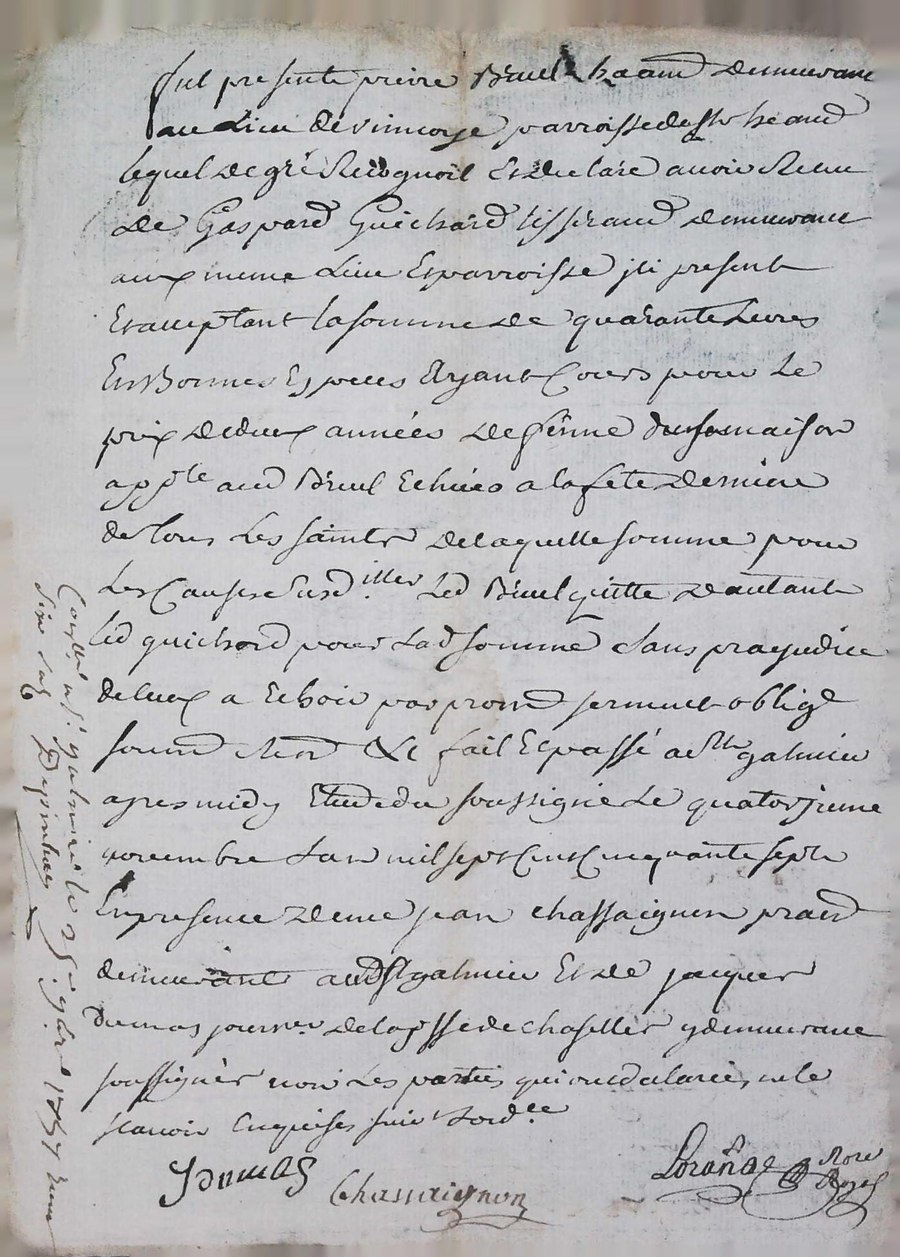 fut presente pierre Breul demeurant
au Lieu de parroisse de st heand
lequel de gré Recognoit Et declaré avoir Receu
de Gaspard Guichard tisserand demeurant
aux meme Lieu Et parroisse jci present
Et acceptant la somme de quarante Livres
En Bonnes Especes Ayant Cours pour Le
prix de deux années de ferme maison
app.te aud Breul Echües a la fete derniere
de tous Les saints de laquelle somme pour
Les Causes Susd.ittes Led Breul quitte dautant
led guichard pour Lad somme Sans prejudice
de ceux a Echoir par prom serment obligé
soum Ren &c fait Et passé a St galmier
apres midy Etude du soussigné Le quatorzieme
novembre Lan mil sept Cent Cinquante sept
En presence de me jean chassaignon pratd
demeurant aud St galmier Et de jacques
dumas journ.er de la psse de chaselles y demeurant
soussignés non Les parties qui ont declarées ne le
scavoir Enquises suiv.t Lord.ce
JDumas Chassaignon Lorange Nore Royal
Conllé a St galmier le 25e 9bre 1757 Recu
Six sols Depinhac